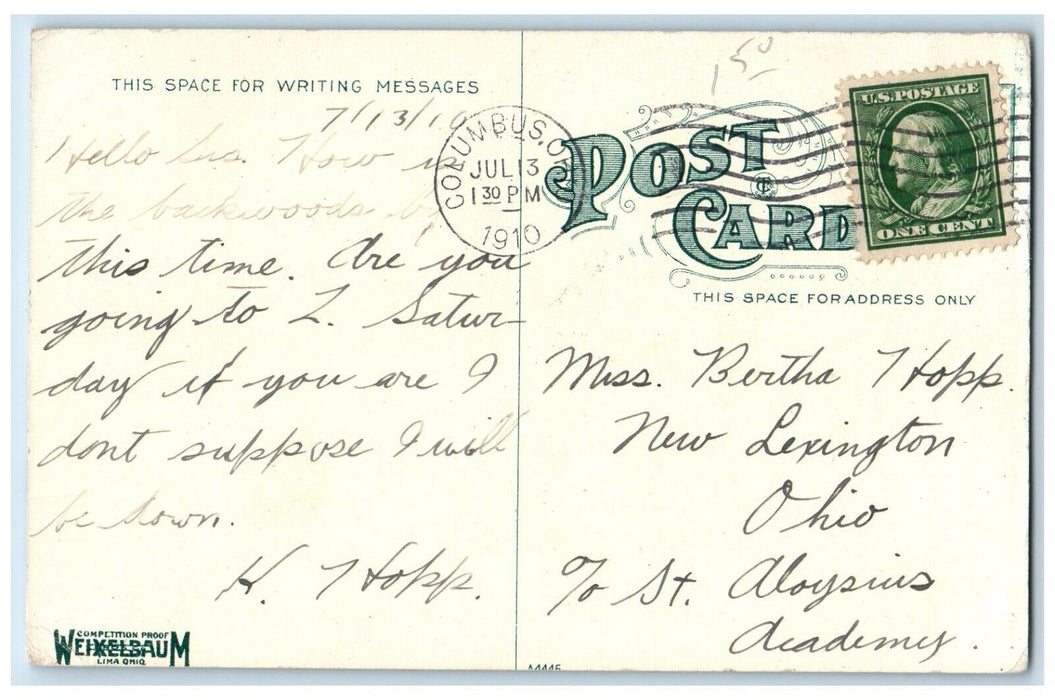 THIS SPACE FOR WRITING MESSAGES
7/13/10
Hello Sis. How is
the backwoods by
this time. Are you
going to L. Satur-
day if you are I
dont suppose I will
be down.
K. Hopp.
COMPETITION PROOF
WEIXELBAUM
LIMA OHIO
A4445
150
COLUMBUS, O
JUL 13
1 30 PM
1910
POST
CARD
U.S. POSTAGE
ONE CENT
THIS SPACE FOR ADDRESS ONLY
Miss. Bertha Hopp.
New Lexington
Ohio
c/o St. Aloysius
Academy.